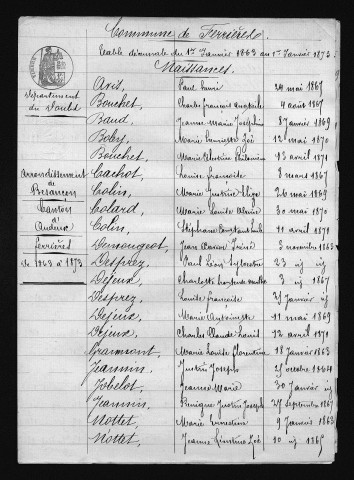 Commune de Ferrières
Table décennale du 1er Janvier 1863 au 1er Janvier 1873.
Naissances.
Département du Doubs
Arrondissement de Besançon
Canton d'Audeux
Ferrières
De 1863 à 1873
Avis, Paul 24 mai 1867
Bouchet, Charles françois 4 août 1867
Baud, Jeanne Marie Joséphine 8 Janvier 1869
Boby, Marie Zoé 12 mai 1870
Bouchet, Marie Philomène 13 avril 1871
Cachot, Louise françoise 8 mars 1867
Colin, Marie Justine 26 mai 1869
Colard, Marie Louise 30 mai 1870
Colin, Stéphanie 11 avril 1871
Demougeot, Jean 3 novembre 1863
Desprez, Paul Léon Sylvestre 23 id id
Dejeux, Charles 3 id 1867
Desprez, Louise françoise 21 Janvier id
Dejeux, Marie Antoinette 11 mai 1869
Dejeux, Charles Claude Louis 12 avril 1871
Grammont, Marie Louise florentine 18 Janvier 1863
Jeannin, Justin Joseph 25 octobre 1864
Jobelot, Jeanne Marie 30 Janvier id
Jeannin, Benigne Justin Joseph 27 Septembre 1867
Mottet, Marie Ernestine 9 Janvier 1863
Mottet, Jeanne Léontine Zoé 10 id 1865